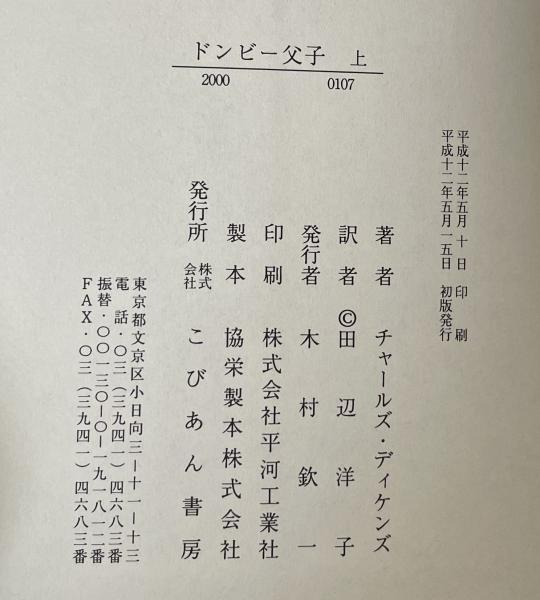 ドンビー父子 上
2000 0107
平成十二年五月 十 日 印 刷
平成十二年五月一五日 初版発行
著者 チャールズ・ディケンズ
訳者 ©田辺洋子
発行者 木村欽一
印刷 株式会社平河工業社
製本 協栄製本株式会社
発行所 株式会社 こびあん書房
東京都文京区小日向三ー十一ー十三
電話・〇三(三九四一)四六八三番
振替・〇〇一三〇ー〇ー一九一八一二番
FAX・〇三(三九四一)四六八三番